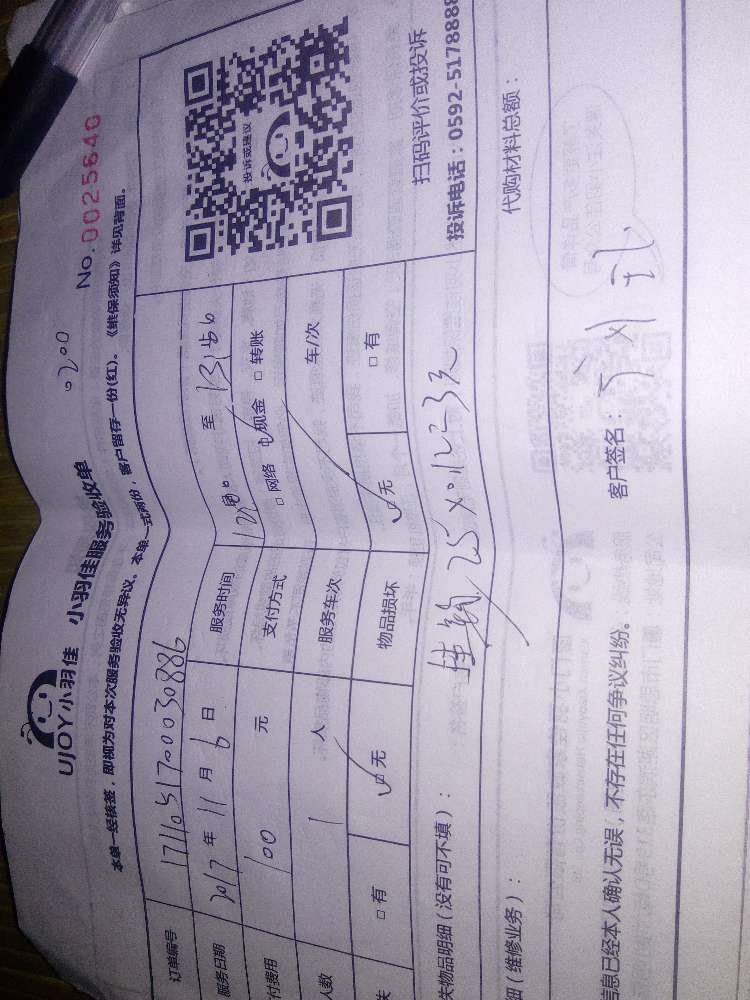 0200
UJOY小羽佳 小羽佳服务验收单 No.0025640
本单一经核签，即视为对本次服务验收无异议。本单一式两份，客户留存一份(红)。《维保须知》详见背面。
订单编号 17110517000030886
服务日期 2017年11月6日 服务时间 至
付费用 100 元 支付方式 □网络 现金 □转账
人数 1 人 服务车次 车/次
失 □有 无 物品损坏 无 □有
投诉或建议
扫码评价或投诉
投诉电话：0592-5178888
失物品明细（没有可不填）：
细（维修业务）： 代购材料总额：
信息已经本人确认无误，不存在任何争议纠纷。 客户签名：